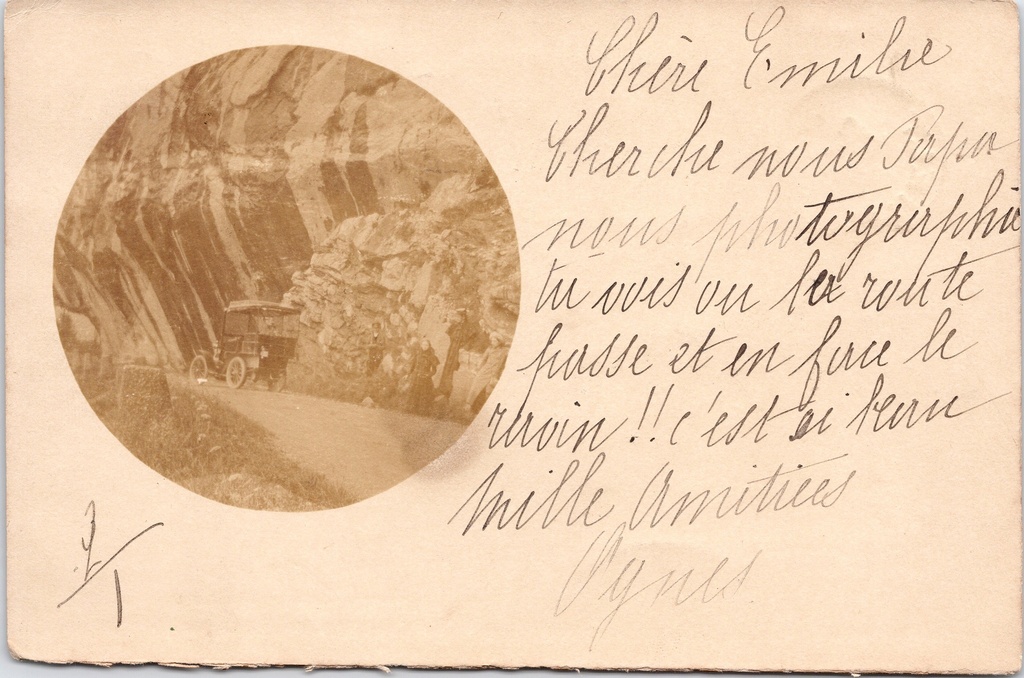 Chère Emilie
Cherche nous Papa
nous photographie
tu vois ou la route
passe et en face le
ravin !! c'est si beau
Mille Amitiees
Agnes
2/1